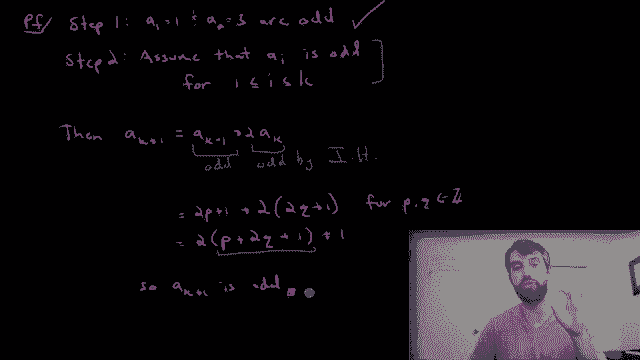 Pf/ Step 1: a₁=1 & a₂=3 are odd ✓
Step 2: Assume that aᵢ is odd
for 1 ≤ i ≤ k
Then aₖ₊₁ = aₖ₋₁ + 2aₖ
odd odd by I.H.
= 2p+1 + 2(2q+1) for p,q ∈ ℤ
= 2(p+2q+1)+1
so aₖ₊₁ is odd